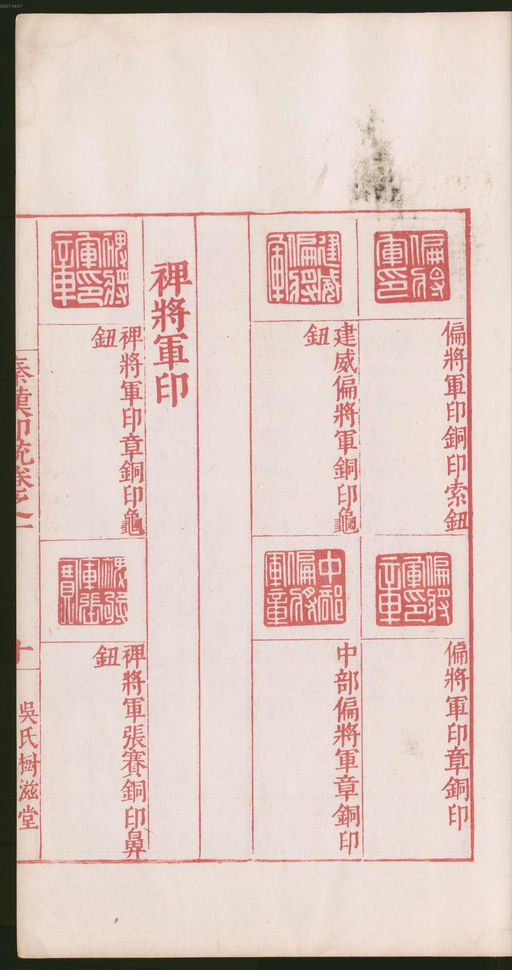 00073447
偏將軍印
偏將軍印銅印索鈕
偏將軍印章
偏將軍印章銅印
建威偏將軍
建威偏將軍銅印龜
鈕
中部偏將軍章
中部偏將軍章銅印
裨將軍印
裨將軍印章
裨將軍印章銅印龜
鈕
裨將軍張賽
裨將軍張賽銅印鼻
鈕
秦漢印統卷之一
十
吳氏樹滋堂